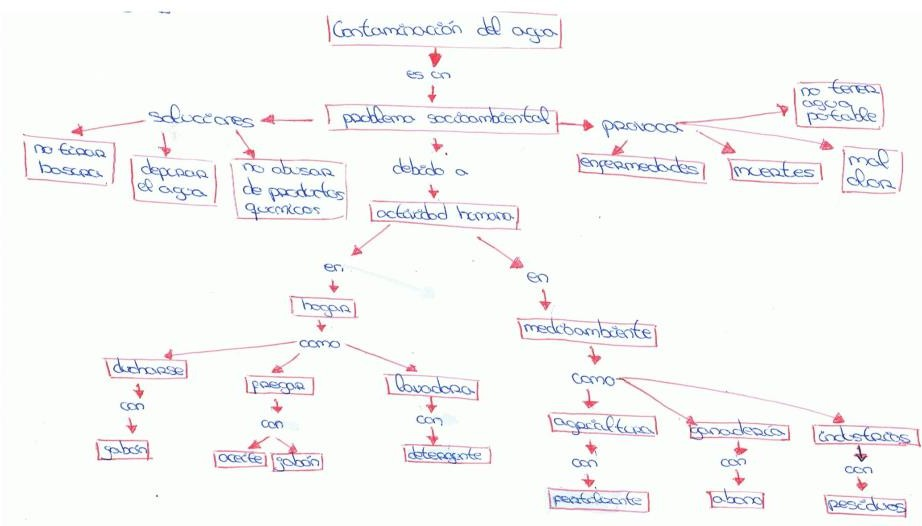 Contaminación del agua
es un
problema socioambiental
soluciones
provoca
no tener
agua
potable
no tirar
basura
depurar
el agua
no abusar
de productos
químicos
debido a
enfermedades
muertes
mal
olor
actividad humana
en
en
hogar
medioambiente
como
como
ducharse
fregar
lavadora
agricultura
ganadería
industrias
con
con
con
con
con
con
jabón
aceite
jabón
detergente
fertilizante
abono
residuos